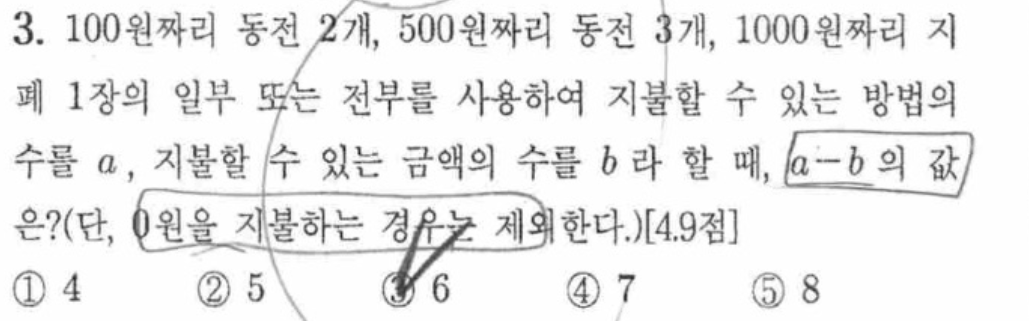 3. 100원짜리 동전 2개, 500원짜리 동전 3개, 1000원짜리 지
폐 1장의 일부 또는 전부를 사용하여 지불할 수 있는 방법의
수를 a, 지불할 수 있는 금액의 수를 b라 할 때, a-b의 값
은?(단, 0원을 지불하는 경우는 제외한다.)[4.9점]
① 4 ② 5 ③ 6 ④ 7 ⑤ 8